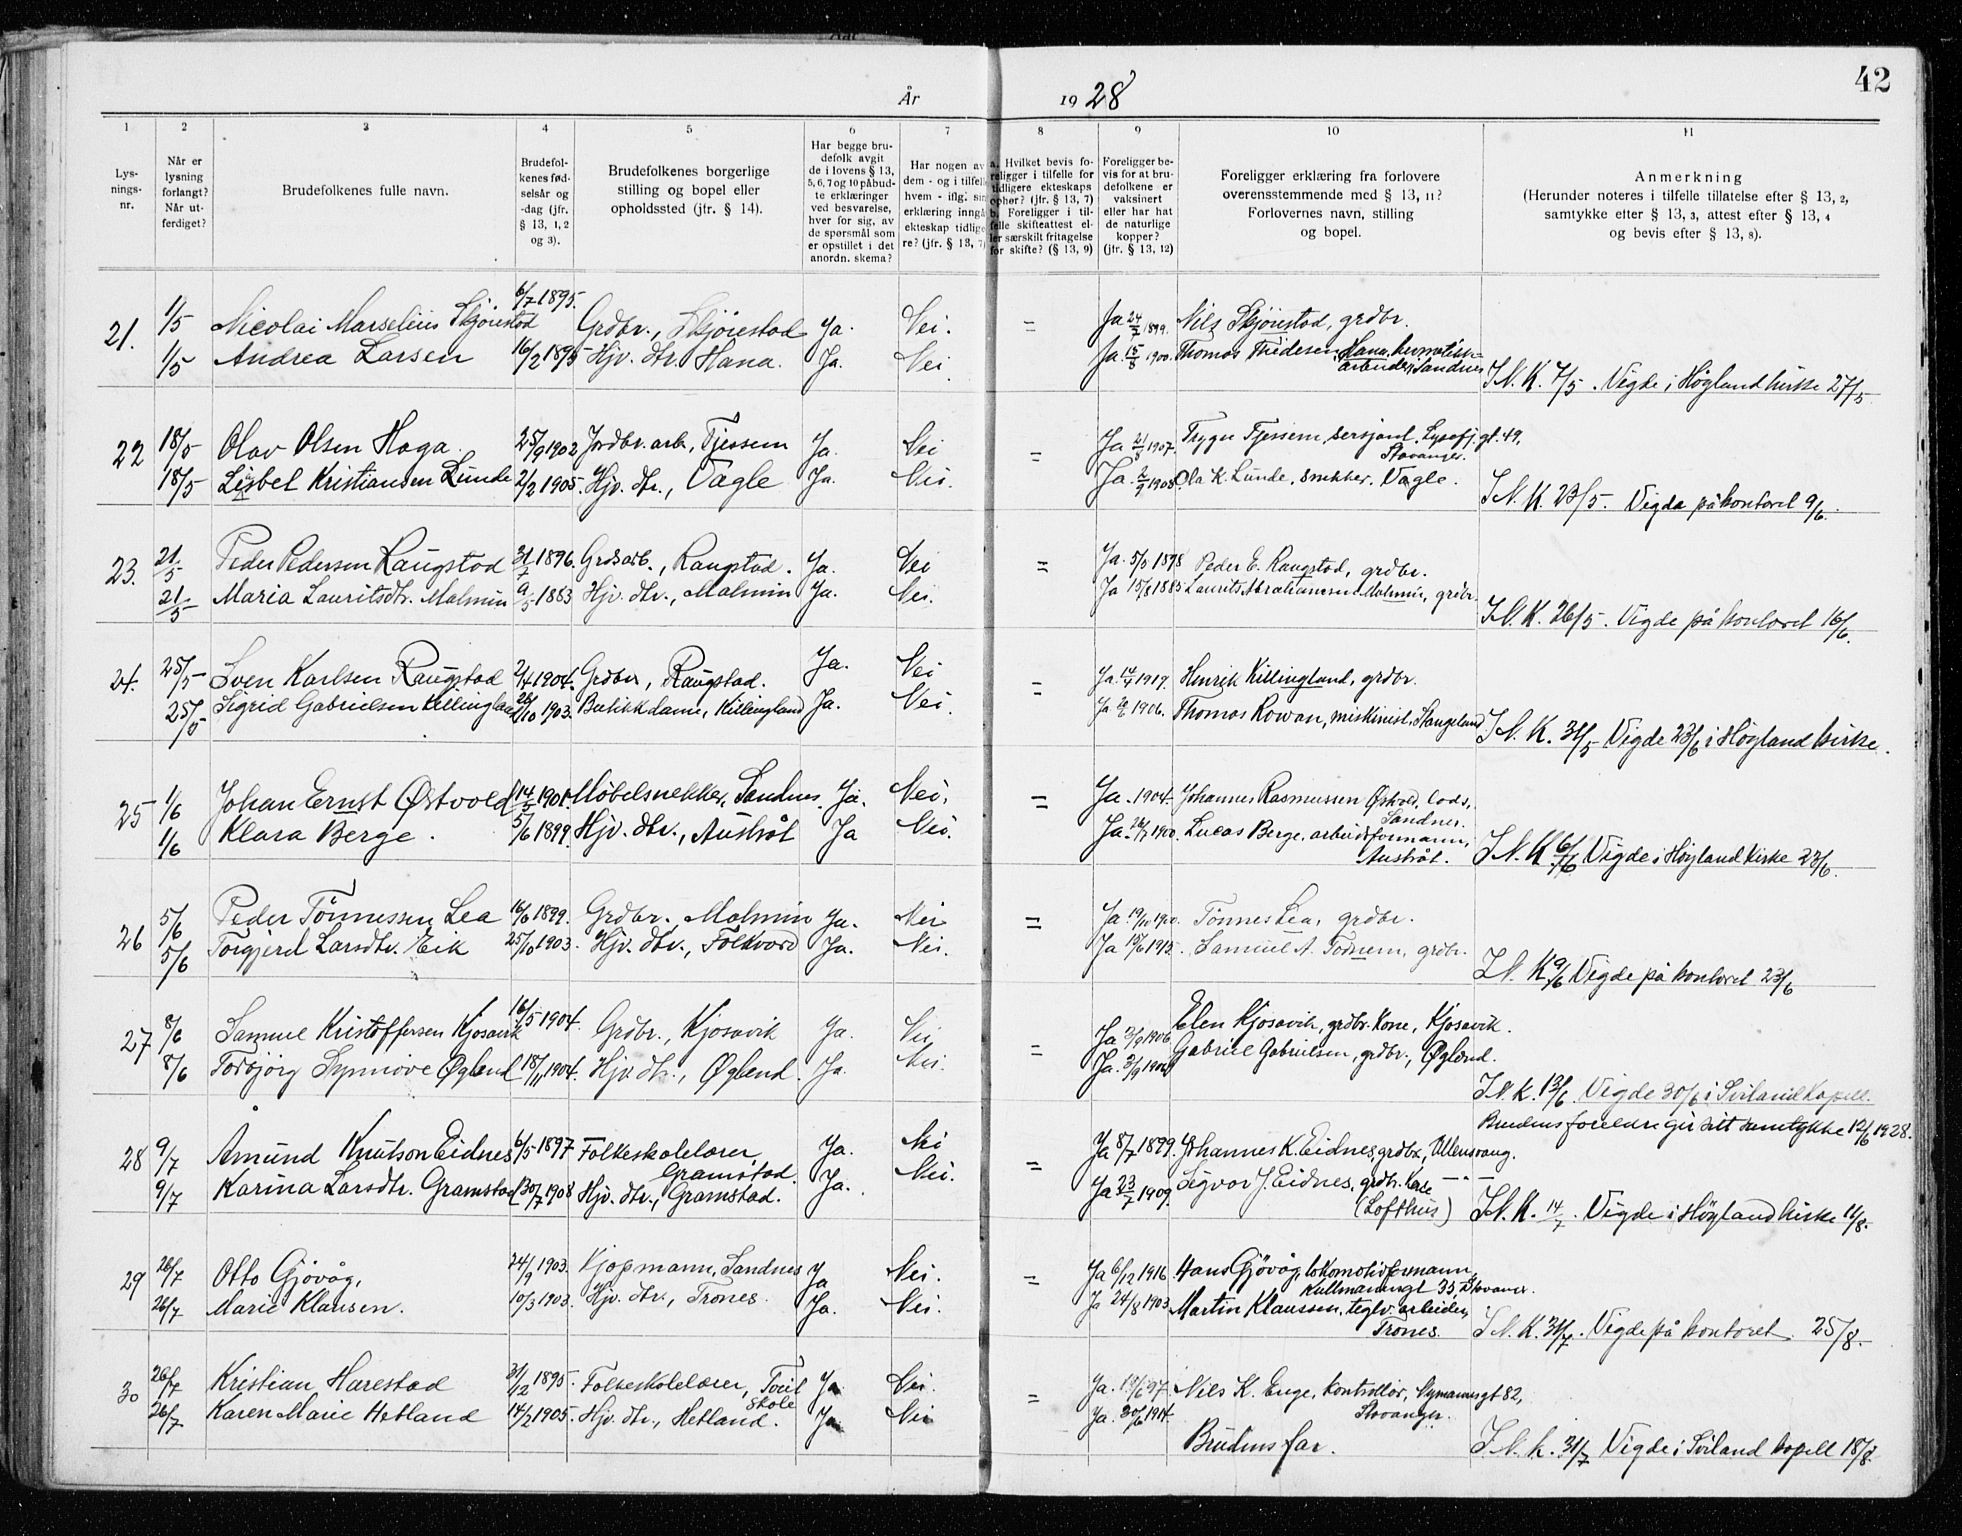 42
År 1928
1 2 3 4 5 6 7 8 9 10 11
Lys-
nings-
nr.
Når er
lysning
forlangt?
Når ut-
ferdiget?
Brudefolkenes fulle navn.
Brudefol-
kenes fød-
selsår og
-dag (jfr.
§ 13, 1, 2
og 3).
Brudefolkenes borgerlige
stilling og bopel eller
opholdssted (jfr. § 14).
Har begge bru-
defolk avgit
de i lovens § 13,
5, 6, 7 og 10 påbud-
te erklæringer
ved besvarelse,
hver for sig, av
de spørsmål som
er opstillet i det
anordn. skema?
Har nogen av
dem - og i tilfelle
hvem - iflg. sin
erklæring inngå
ekteskap tidlige-
re? (jfr. § 13, 7)
a. Hvilket bevis fo-
religger i tilfelle for
tidligere ekteskaps
ophør? (jfr. § 13, 7)
b. Foreligger i til-
felle skifteattest el-
ler særskilt fritagelse
for skifte? (§ 13, 9)
Foreligger be-
vis for at bru-
defolkene er
vaksinert
eller har hat
de naturlige
kopper?
(jfr. § 13, 12)
Foreligger erklæring fra forlovere
overensstemmende med § 13, 11?
Forlovernes navn, stilling
og bopel.
Anmerkning
(Herunder noteres i tilfelle tillatelse efter § 13, 2,
samtykke efter § 13, 3, attest efter § 13, 4
og bevis efter § 13, 8).
21. 1/5 Nicolai Marselius Skjørestad 6/7 1895. Grdbr., Skjørestad Ja. Nei. = Ja 24/7 1899. Nils Skjørestad, grdbr.
1/5 Andrea Larsen 16/2 1895 Hjv. dtr. Hana. Ja. Nei Ja. 15/8 1900. Thomas Tridesen, Hana, hermetikk-
arbeider, Sandnes
I.N.K. 7/5. Vigde i Høgland kirke 27/5
22 18/5 Olav Olsen Haga. 25/9 1902 Jordbr. arb., Tjessem Ja. Nei = Ja 21/ 1907. Trygve Tjessem, sersjant, Lysefj.gt. 49.
Stavanger.
18/5 Lisbel Kristiansen Lunde 2/2 1905. Hjv. dtr., Vagle Ja. Nei. Ja. 2/9 1908. Ola K. Lunde, snekker, Vagle.
I.N.K. 23/5. Vigde på kontoret 9/6.
23. 21/5 Peder Pedersen Raugstad 31/7 1896. Grdsarb., Raugstad. Ja. Nei = Ja. 5/5 1898 Peder E. Raugstad, grdbr.
21/5 Maria Lauritsdtr. Malmin 9/5 1883 Hjv. dtr., Malmin Ja. Nei. Ja 15/8 1885 Laurits Abrahamsen Malmin, grdbr.
I.N.K. 26/5. Vigde på kontoret 16/6.
24. 25/5 Sven Karlsen Raugstad 2/4 1904. Grdbr, Raugstad. Ja. Nei = Ja. 14/7 1919. Henrik Killingland, grdbr.
25/5 Sigrid Gabrielsen Killingland 26/10 1903. Butikkdame, Killingland Ja. Nei. Ja 1906. Thomas Rowan, maskinist, Stangeland
I.N.K. 31/5 Vigde 23/6 i Høgland kirke.
25 1/6 Johan Ernst Østvold 14/5 1901. Møbelsnekker, Sandnes. Ja. Nei. = Ja. 1904. Johannes Rasmussen Østvold, lods,
Sandnes.
1/6 Klara Berge. 5/6 1899. Hjv. dtr., Austråt Ja Nei. Ja. 26/7 1900. Lucas Berge, arbeidsformann,
Austråt.
I.N.K. 6/6 Vigde i Høyland kirke 23/6.
26 5/6 Peder Tönnessen Lea 16/6 1899. Grdbr. Malmin Ja. Nei = Ja 19/10 1900. Tönnes Lea, grdbr.
5/6 Torgjerd Larsdtr. Eik 25/10 1903. Hjv. dtr., Folkvord Ja. Nei. Ja 15/6 1915. Samuel A. Todnem, grdbr.
I.N.K. 9/6 Vigde på kontoret 23/6
27 8/6 Samuel Kristoffersen Kjosavik 16/5 1904. Grdbr., Kjosavik Ja. Nei = Ja 3/9 1906 Elen Kjosavik, grdbr. kone, Kjosavik.
8/6 Torbjörg Synnöve Øglend 18/11 1904. Hjv. dtr., Øglend. Ja. Nei. Ja. 3/9 1904 Gabriel Gabrielsen, grdbr., Øglænd.
I.N.K. 13/6. Vigde 30/6 i Sviland kapell.
Brudens foreldre gir sitt samtykke 12/6 1928.
28 9/7 Åmund Knutson Eidnes 6/5 1897 Folkeskolelærer, Gramstad. Ja. Nei = Ja 8/7 1899. Johannes K. Eidnes, grdbr, Ullensvang.
9/7 Karina Larsdtr. Gramstad 30/7 1908 Hjv. dtr., Gramstad. Ja. Nei. Ja 23/7 1909. Sigvor J. Eidnes, grdbr. kone — " —
(Lofthus)
I.N.K. 14/7. Vigde i Høyland kirke 11/8.
29 26/7 Otto Gjövåg, 24/9 1903. Kjøpmann, Sandnes Ja Nei. = Ja 6/12 1916. Hans Gjövåg, lokomotivformann,
Kullmanngt 33, Stavanger.
26/7 Marie Klausen. 10/3 1903. Hjv. dtr., Trones. Ja. Nei. Ja 24/8 1903 Martin Klaussen, teglv. arbeider,
Trones.
I.N.K. 31/7. Vigde på kontoret 25/8.
30 26/7 Kristian Harestad 31/12 1895. Folkeskolelærer, Tveit skole Ja Nei. = Ja. 97. Nils K. Enge, kontrollör, Nymannsgt 82,
Stavanger.
26/7 Karen Marie Hetland 14/2 1905. Hjv. dtr., Hetland. Ja. Nei Ja. 30/6 1914.
Brudens far.
I.N.K. 31/7 Vigde i Sviland kapell 18/8.